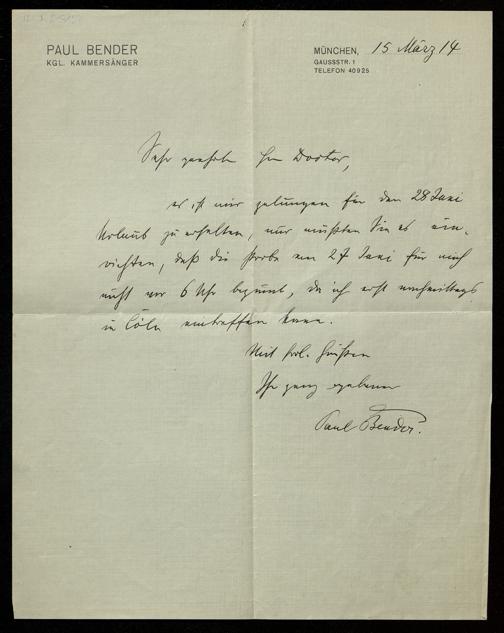 PAUL BENDER
KGL. KAMMERSÄNGER
MÜNCHEN, 15 März 14
GAUSSSTR. 1
TELEFON 40925
Sehr geehrter Herr Doctor,
es ist mir gelungen für den 28 Juni
Urlaub zu erhalten, nur müßten Sie es ein-
richten, daß die Probe am 27 Juni für mich
nicht vor 6 Uhr beginnt, da ich erst nachmittags
in Cöln eintreffen kann.
Mit frdl. Grüßen
Ihr ganz ergebener
Paul Bender.